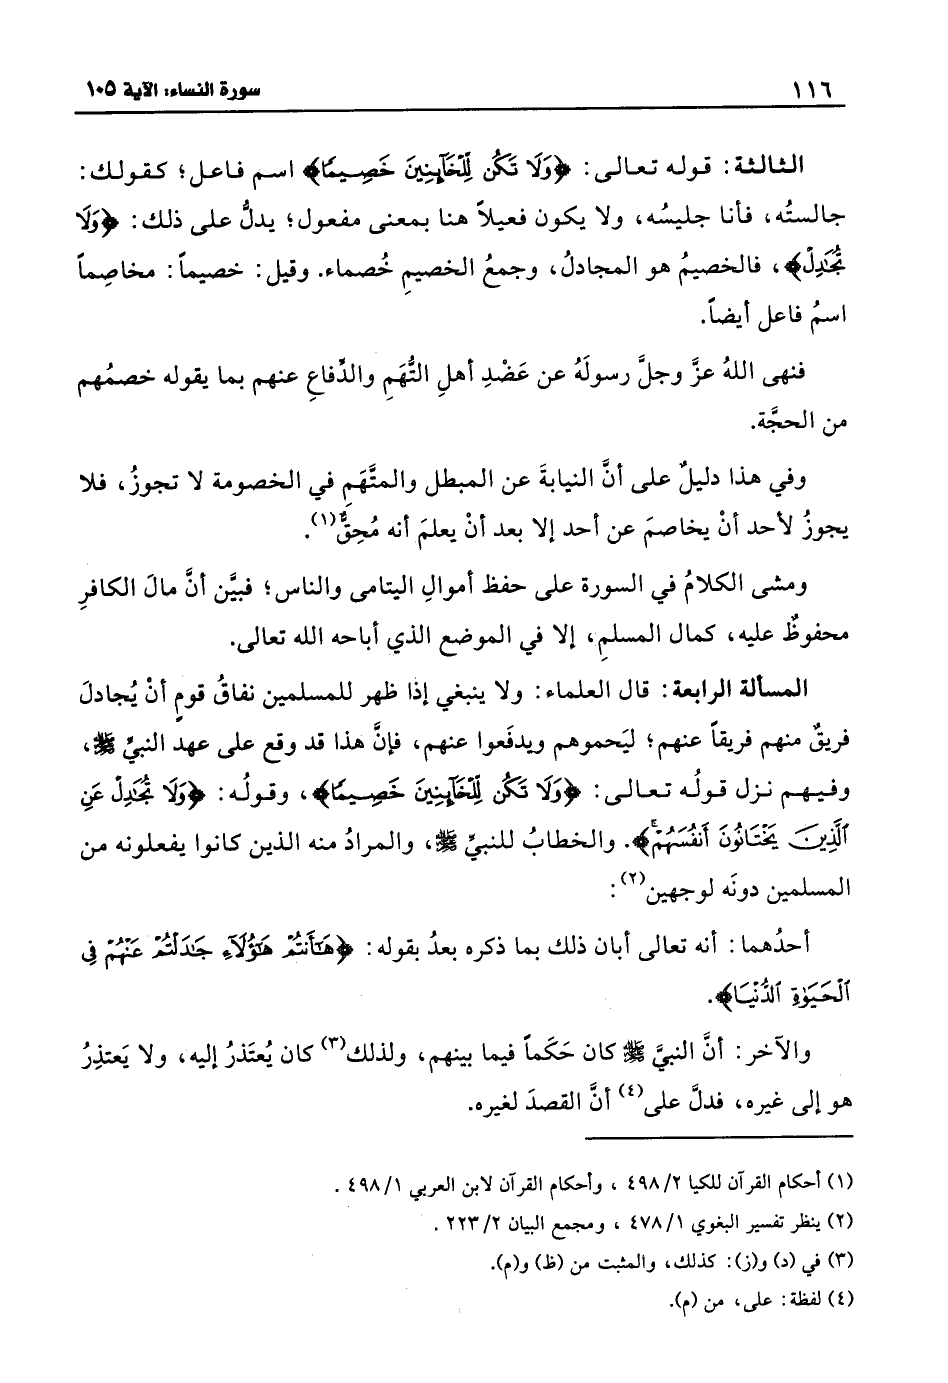 ١١٦
سورة النساء: الآية ١٠٥
الثالثة: قوله تعالى: ﴿وَلَا تَكُن لِّلْخَآئِنِينَ خَصِيمًا﴾ اسم فاعل؛ كقولك:
جالستُه، فأنا جليسُه، ولا يكون فعيلاً هنا بمعنى مفعول؛ يدلُّ على ذلك: ﴿وَلَا
تُجَٰدِلْ﴾، فالخصيمُ هو المجادلُ، وجمعُ الخصيمِ خُصماء. وقيل: خصيماً: مخاصِماً
اسمُ فاعل أيضاً.
فنهى اللهُ عزَّ وجلَّ رسولَهُ عن عَضْدِ أهلِ التُّهَمِ والدِّفاعِ عنهم بما يقوله خصمُهم
من الحجَّة.
وفي هذا دليلٌ على أنَّ النيابةَ عن المبطل والمتَّهَمِ في الخصومة لا تجوزُ، فلا
يجوزُ لأحد أنْ يخاصمَ عن أحد إلا بعد أنْ يعلمَ أنه مُحِقٌّ(١).
ومشى الكلامُ في السورة على حفظ أموالِ اليتامى والناس؛ فبيَّن أنَّ مالَ الكافرِ
محفوظٌ عليه، كمال المسلمِ، إلا في الموضع الذي أباحه الله تعالى.
المسألة الرابعة: قال العلماء: ولا ينبغي إذا ظهر للمسلمين نفاقُ قومٍ أنْ يُجادلَ
فريقٌ منهم فريقاً عنهم؛ ليَحموهم ويدفَعوا عنهم، فإنَّ هذا قد وقع على عهد النبيِّ ﷺ،
وفيهم نزل قولُه تعالى: ﴿وَلَا تَكُن لِّلْخَآئِنِينَ خَصِيمًا﴾، وقولُه: ﴿وَلَا تُجَٰدِلْ عَنِ
ٱلَّذِينَ يَخْتَانُونَ أَنفُسَهُمْ﴾. والخطابُ للنبيِّ ﷺ، والمرادُ منه الذين كانوا يفعلونه من
المسلمين دونَه لوجهين(٢):
أحدُهما: أنه تعالى أبان ذلك بما ذكره بعدُ بقوله: ﴿هَٰٓأَنتُمْ هَٰٓؤُلَآءِ جَٰدَلْتُمْ عَنْهُمْ فِى
ٱلْحَيَوٰةِ ٱلدُّنْيَا﴾.
والآخر: أنَّ النبيَّ ﷺ كان حَكَماً فيما بينهم، ولذلك(٣) كان يُعتَذرُ إليه، ولا يَعتذِرُ
هو إلى غيره، فدلَّ على(٤) أنَّ القصدَ لغيره.
(١) أحكام القرآن للكيا ٤٩٨/٢ ، وأحكام القرآن لابن العربي ٤٩٨/١ .
(٢) ينظر تفسير البغوي ٤٧٨/١ ، ومجمع البيان ٢٢٣/٢ .
(٣) في (د) و(ز): كذلك، والمثبت من (ظ) و(م).
(٤) لفظة: على، من (م).